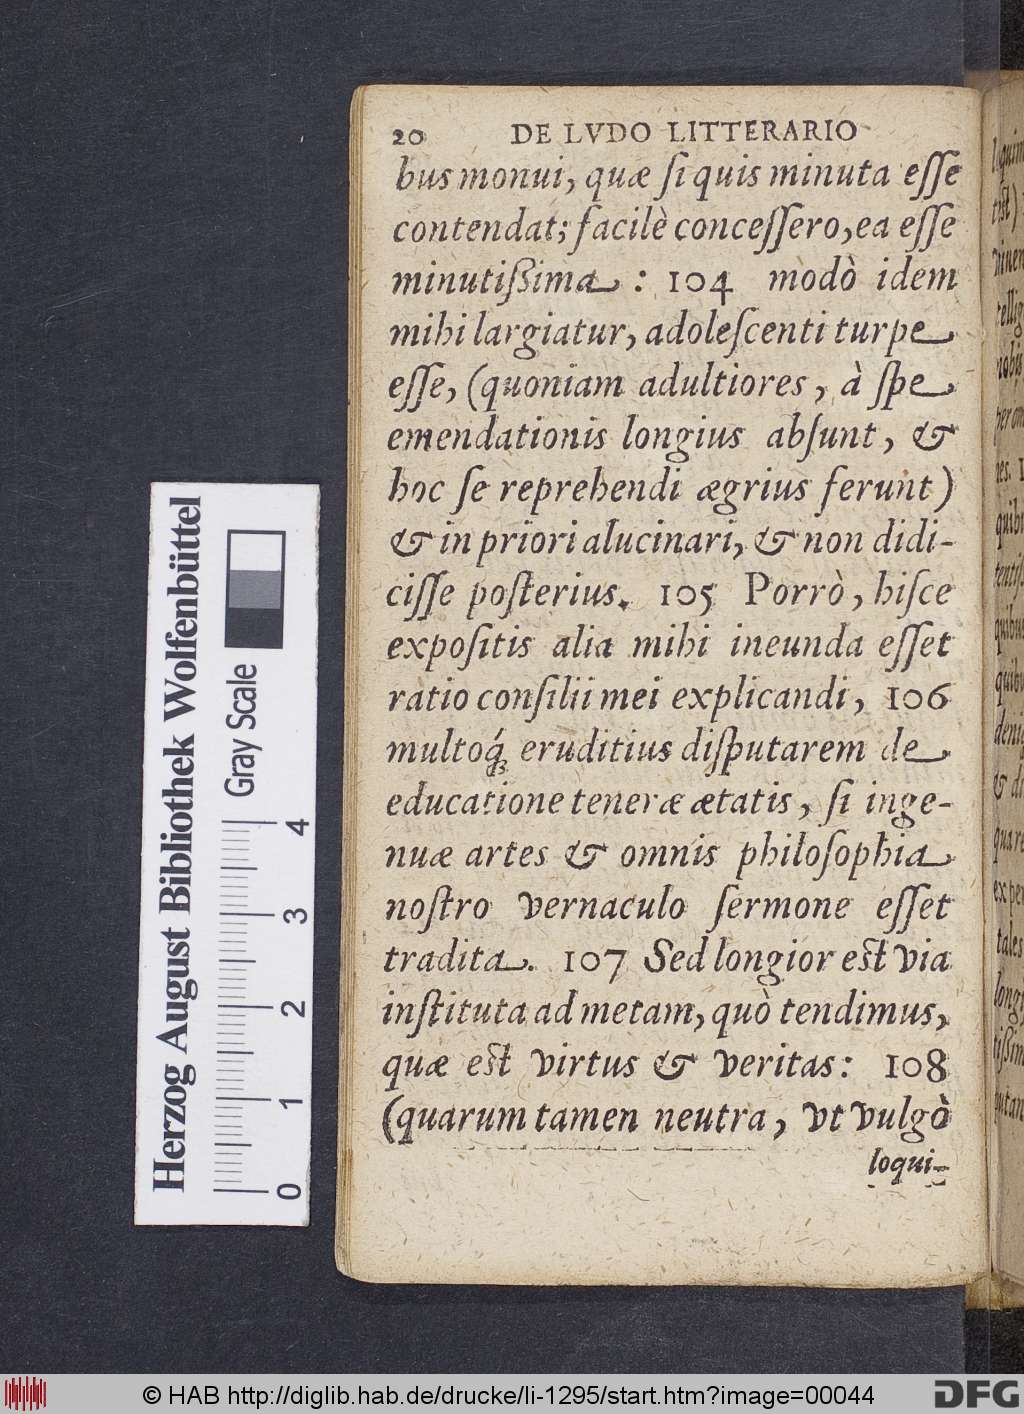 20 DE LVDO LITTERARIO
bus monui, quæ ſi quis minuta eſſe
contendat; facilè conceſſero, ea eſſe
minutißima : 104 modò idem
mihi largiatur, adoleſcenti turpe
eſſe, (quoniam adultiores, à ſpe
emendationis longius abſunt, &
hoc ſe reprehendi ægrius ferunt)
& in priori alucinari, & non didi-
ciſſe poſterius. 105 Porrò, hiſce
expoſitis alia mihi ineunda eſſet
ratio conſilii mei explicandi, 106
multoq́; eruditius diſputarem de
educatione teneræ ætatis, ſi inge-
nuæ artes & omnis philoſophia
noſtro vernaculo ſermone eſſet
tradita. 107 Sed longior eſt via
inſtituta ad metam, quò tendimus,
quæ eſt virtus & veritas: 108
(quarum tamen neutra, vt vulgò
loqui-
Herzog August Bibliothek Wolfenbüttel
Gray Scale
0 1 2 3 4
© HAB http://diglib.hab.de/drucke/li-1295/start.htm?image=00044
DFG